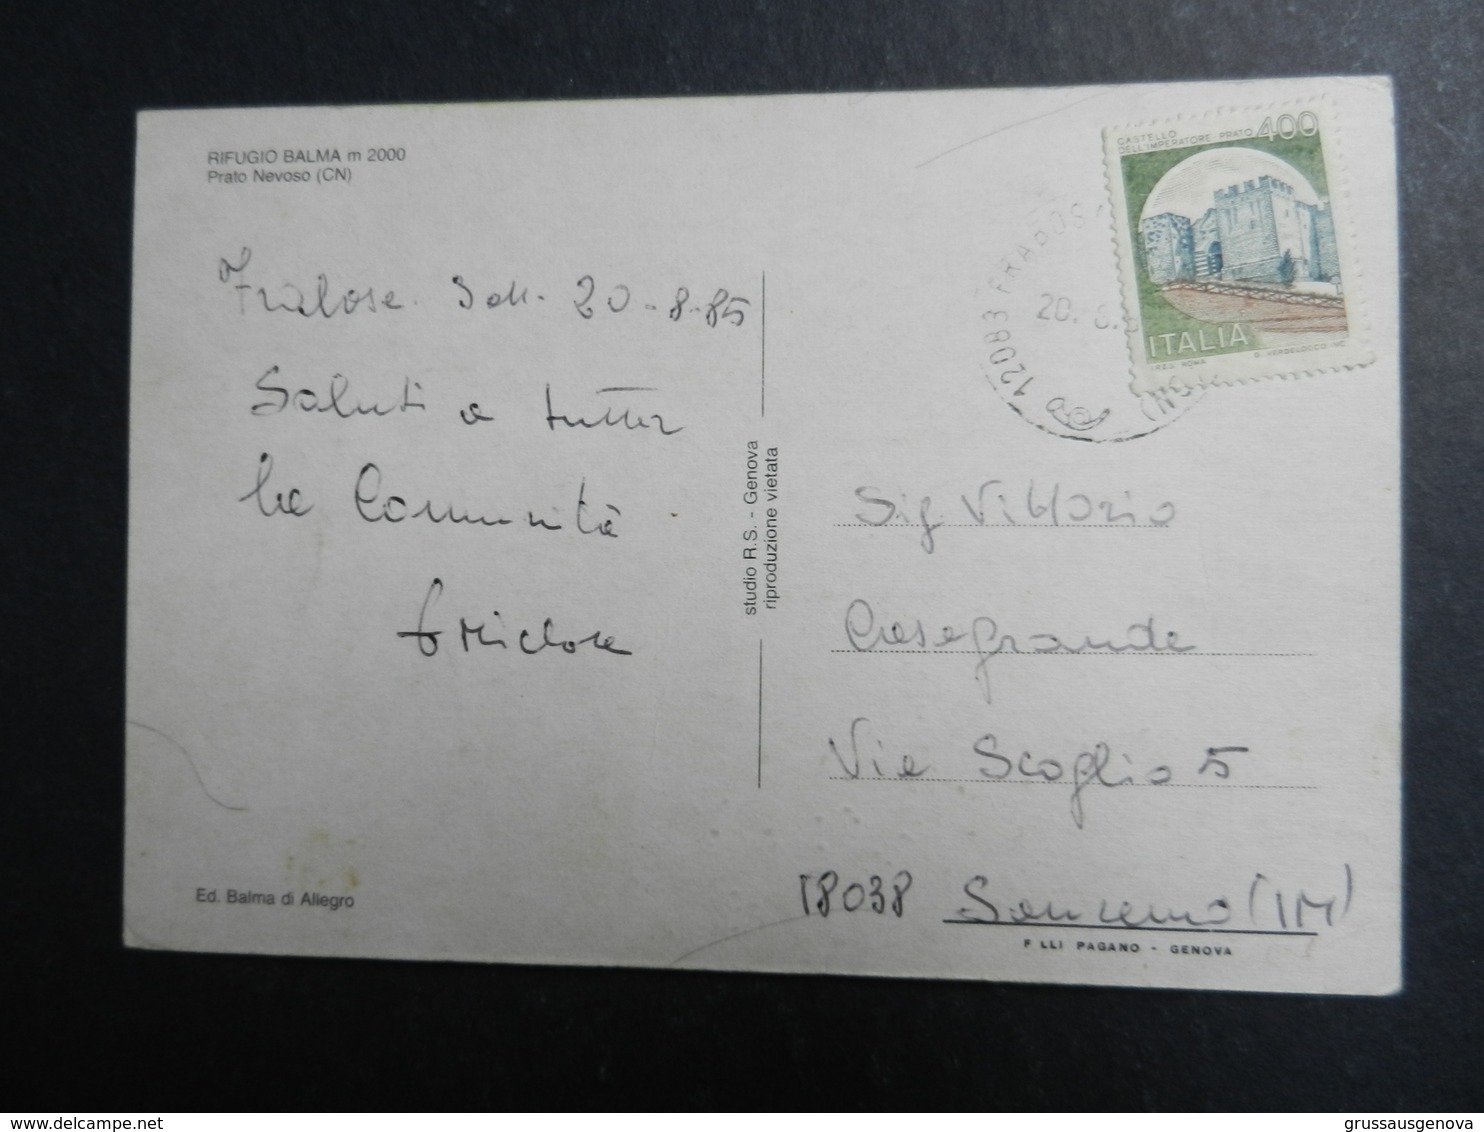 RIFUGIO BALMA m 2000
Prato Nevoso (CN)
20-8-85
Saluti a tutta
la Comunità
studio R.S. - Genova
riproduzione vietata
CASTELLO
DELL'IMPERATORE-PRATO 400
ITALIA
I.P.Z.S. ROMA
12083 FRABOS
20. 8.
Sig Vittorio
Casagrande
Via Scoglio 5
18038 Sanremo (IM)
Ed. Balma di Allegro
F.LLI PAGANO - GENOVA
delcampe.net
grussausgenova